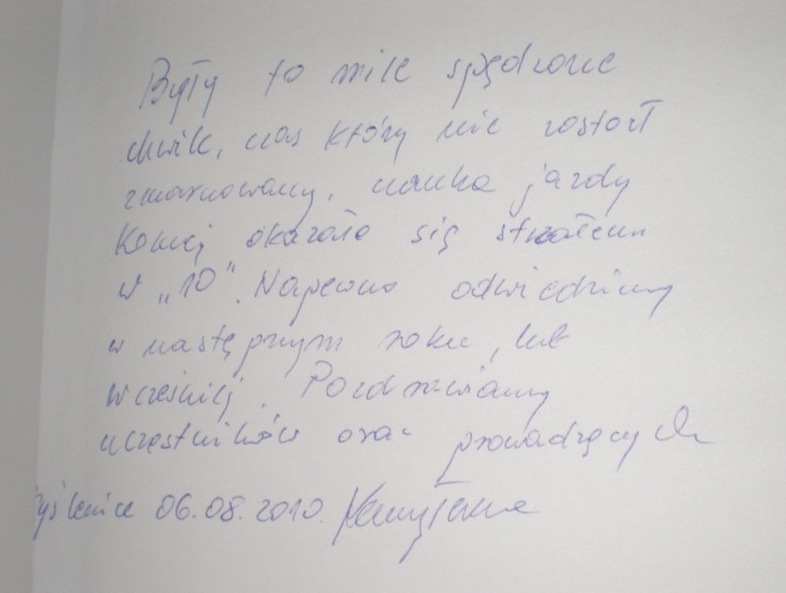 Były to miłe spędzone
chwile, czas który nie został
zmarnowany, nauka jazdy
Konnej okazała się strzałem
w „10”. Napewno odwiedzimy
w następnym roku, lub
wcześniej. Pozdrawiamy
uczęstników oraz prowadzących
yślenice 06.08.2010.